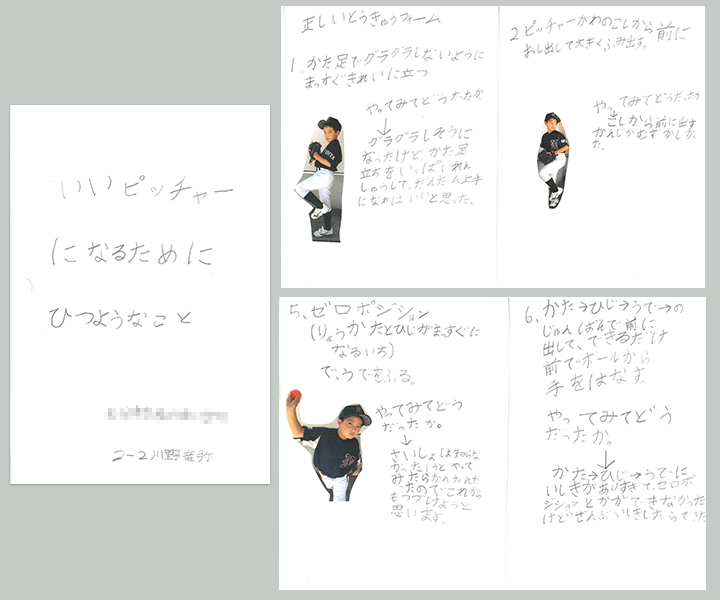 いいピッチャー
になるために
ひつようなこと
2-2 川野
正しいとうきゅうフォーム
1、かた足でグラグラしないように
まっすぐきれいに立つ
やってみてどうだったか。
↓
グラグラしそうに
なったけど、かた足
立ちをいっぱいれん
しゅうして、だんだん上手
になればいいと思った。
2 ピッチャーがわのこしから前に
おし出して大きくふみ出す。
やってみてどうだったか
↓
こしから前に出す
かんじがむずかしかっ
た。
5、ゼロポジション
(りょうかたとひじがまっすぐに
なるいち)
で、うでをふる。
やってみてどう
だったか。
↓
さいしょは知らな
かったけどやって
みたらかんたんだ
ったので、これから
もつづけようと
思います。
6、かた→ひじ→うで→の
じゅんばんで前に
出して、できるだけ
前でボールから
手をはなす。
やってみてどう
だったか。
↓
かた→ひじ→うでに
いしきがありすぎて、ゼロポ
ジションとかができなかった
けどぜんぶいしきしたらできた